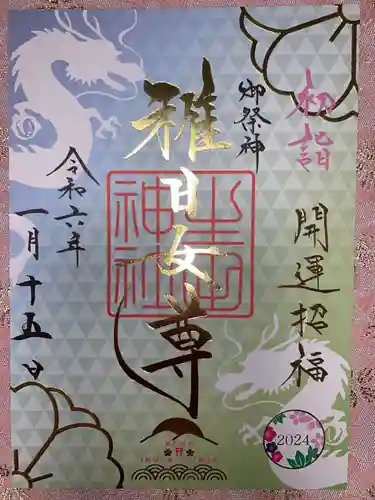 初詣
開運招福
御祭神
稚日女尊
生田神社
令和六年
一月十五日
2024